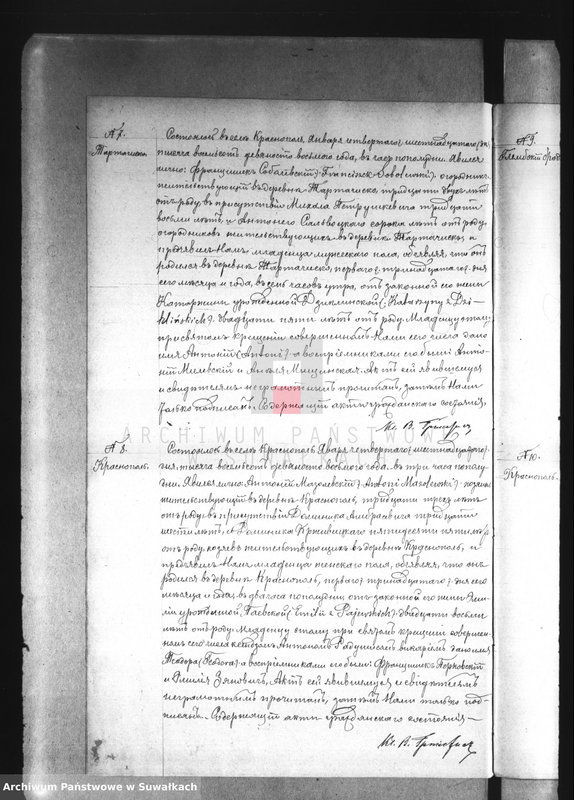 № 7.
Тартачиско.
Состоялось въ селѣ Краснополѣ Января четвертаго /: шестнадцатаго :/ дня
тысяча восемьсотъ девяносто восьмого года, въ часъ пополудни. Явился
лично: Францишекъ Соболевскій /: Franciszek Sobolewski :/ огородникъ
жительствующій въ деревнѣ Тартачиско, тридцати двухъ лѣтъ
отъ роду, въ присутствіи Михала Петрушкевича тридцати
восьми лѣтъ и Антонего сорока лѣтъ отъ роду,
огородниковъ жительствующихъ въ деревнѣ Тартачиско, и
предъявилъ Намъ младенца мужескаго пола, объявляя, что онъ
родился въ деревнѣ Тартачиско, перваго /: тринадцатаго :/ дня
сего мѣсяца и года, въ семь часовъ утра, отъ законной его жены
Катаржины урожденной
двадцати пяти лѣтъ отъ роду. Младенцу этому
при святомъ крещеніи совершенномъ Нами сего числа дано
имя Антоній /: Antoni :/ а воспріемниками его были Анто-
ній и Анеля Актъ сей явившемуся
и свидѣтелямъ неграмотнымъ прочитанъ, затѣмъ Нами
только подписанъ. Содержащій акты гражданскаго состоянія,
Кс. В.
ARCHIWUM PAŃSTWOWE
№ 8.
Краснополь.
Состоялось въ селѣ Краснополѣ Января четвертаго /: шестнадцатаго :/
дня, тысяча восемьсотъ девяносто восьмого года, въ три часа пополу-
дни. Явился лично Антоній Мазолевскій /: Antoni Mazolewski :/
жительствующій въ деревнѣ Краснополь, тридцати трехъ лѣтъ
отъ роду въ присутствіи Доминика тридцати
шести лѣтъ, и Доминика пятидесяти пяти лѣтъ
отъ роду, жительствующихъ въ деревнѣ Краснополь, и
предъявилъ Намъ младенца женскаго пола, объявляя, что онъ
родился въ деревнѣ Краснополь, перваго /: тринадцатаго :/ дня сего
мѣсяца и года, въ два часа пополудни отъ законной его жены Эми-
ліи урожденной двадцати восьми
лѣтъ отъ роду. Младенцу этому при святомъ крещеніи совершен-
номъ сего числа ксендзомъ Антоніемъ викаріемъ дано имя
Теодора а воспріемниками его были: Францишекъ
и Эмилія Актъ сей явившемуся и свидѣтелямъ
неграмотнымъ прочитанъ, затѣмъ Нами только под-
писанъ. Содержащій акты гражданскаго состоянія
Кс. В.
№ 9.
№ 10.
Краснополь.
Archiwum Państwowe w Suwałkach